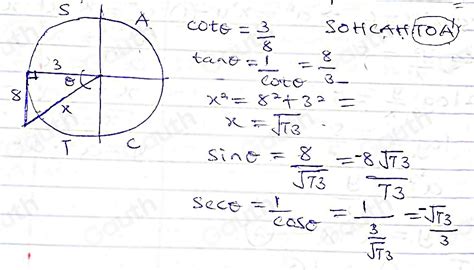 S A
3
θ
8
x
T C
cotθ = 3/8 SOHCAHTOA
tanθ = 1/cotθ = 8/3
x² = 8² + 3² =
x = √73 .
sinθ = 8/√73 = -8√73/73
secθ = 1/cosθ = 1/(3/√73) = -√73/3